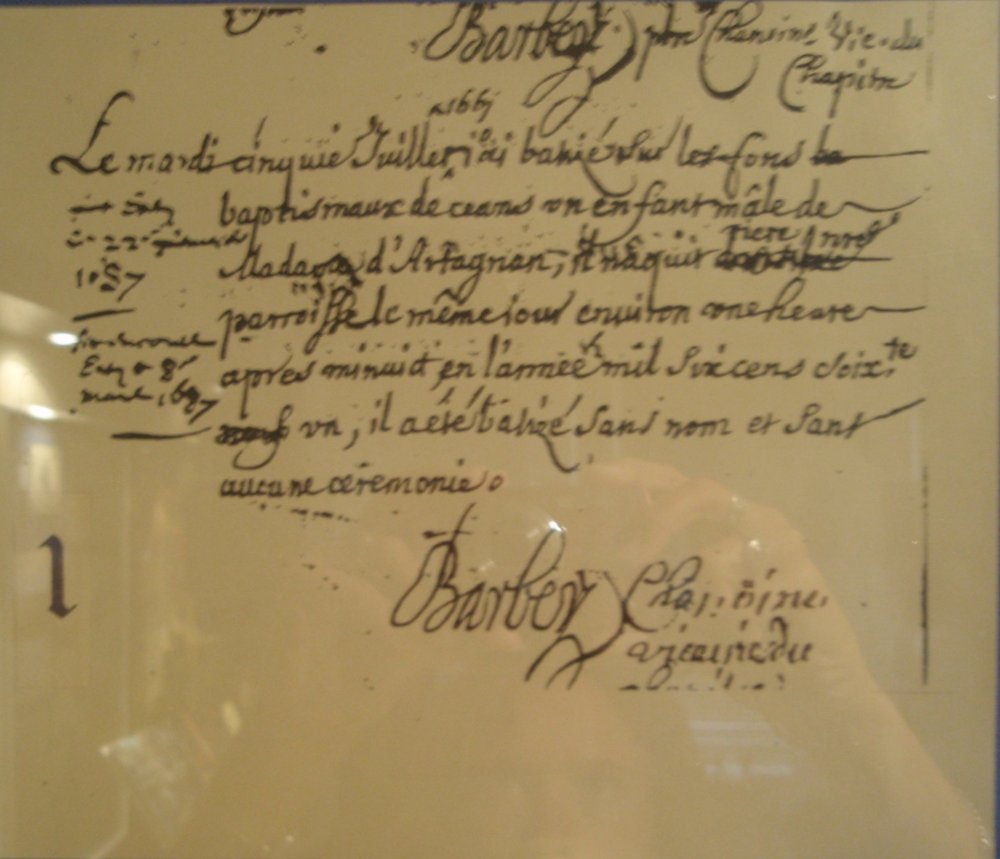 Barbery pbr Chanoine Vic. du
Chapitre
1661
Le mardi cinquie Juillet i'ai batizé sur les fons
baptismaux de ceans vn enfant mâle de
Madame d'Artagnan, il naquit
parroisse le même iour enuiron vne heure
apres minuit, en l'année mil six cens soix.te
vn, il a été batizé sans nom et sans
aucune ceremonie.
1687
mars 1687
1
Barbery Chanoine
vicaire du